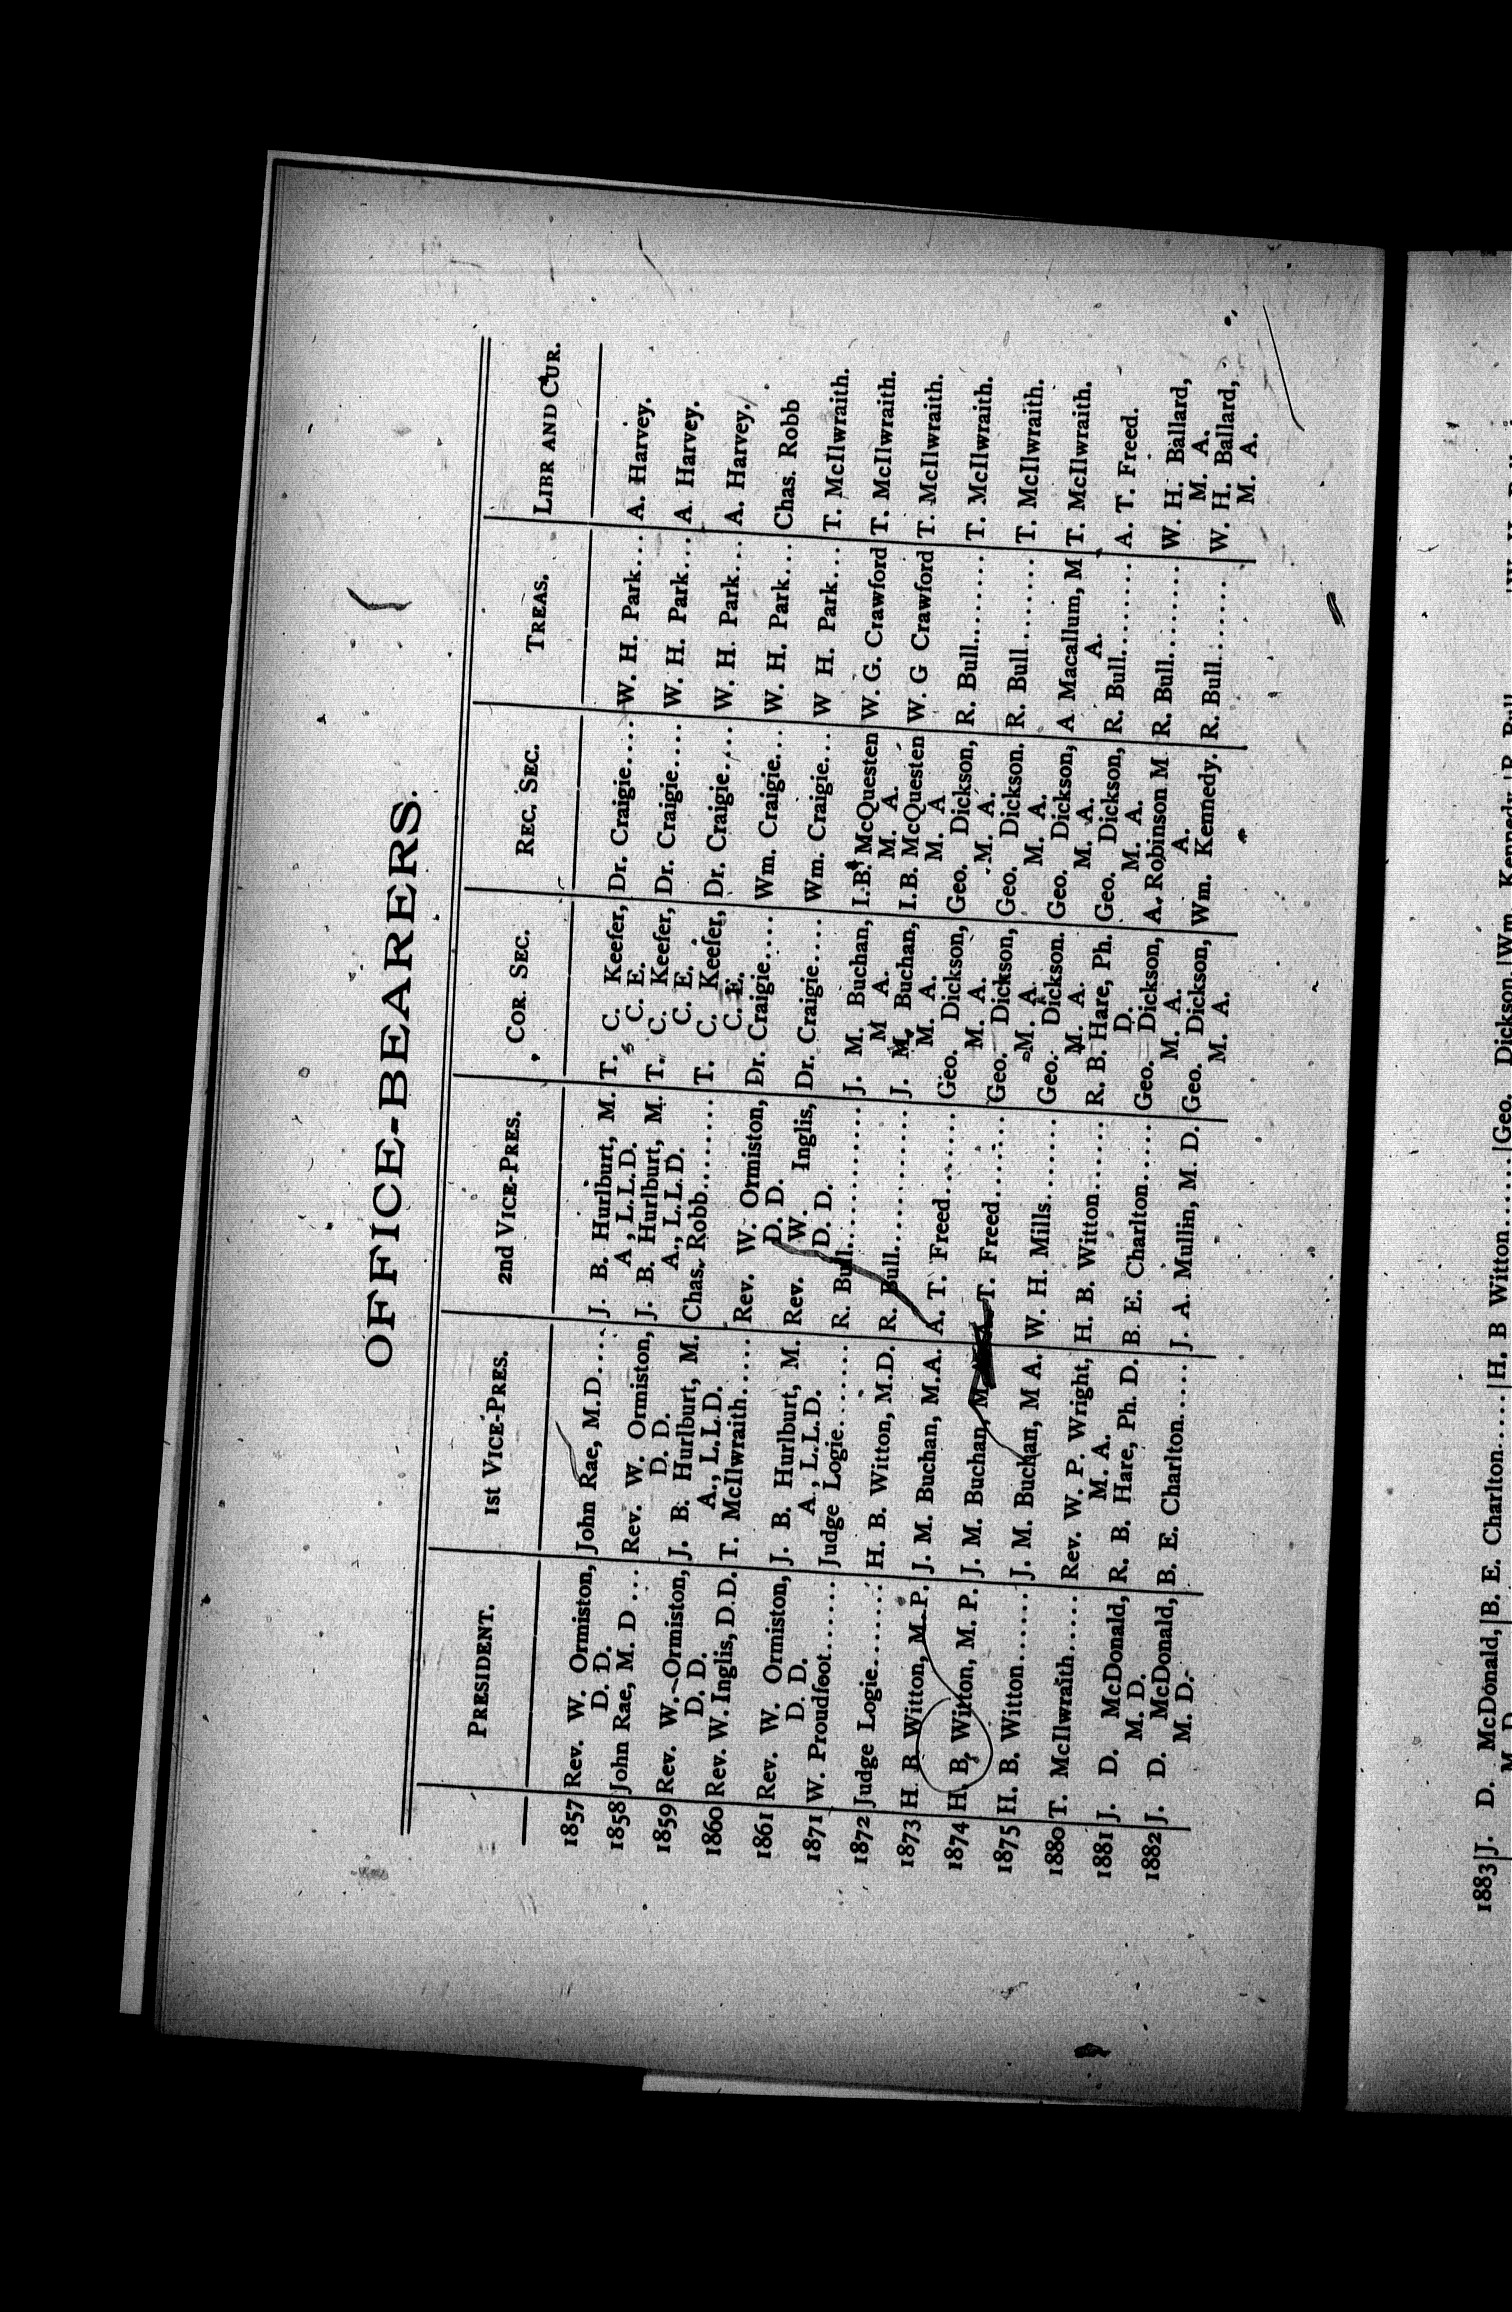 OFFICE-BEARERS.
PRESIDENT. 1st VICE-PRES. 2nd VICE-PRES. COR. SEC. REC. SEC. TREAS. LIBR AND CUR.
1857 Rev. W. Ormiston, John Rae, M.D.... J. B. Hurlburt, M. T. C. Keefer, Dr. Craigie.... W. H. Park... A. Harvey.
D. D. A, L.L.D. C. E.
1858 John Rae, M. D ... Rev. W. Ormiston, J. B. Hurlburt, M. T. C. Keefer, Dr. Craigie.... W. H. Park... A. Harvey.
D. D. A., L.L.D. C. E.
1859 Rev. W. Ormiston, J. B. Hurlburt, M. Chas. Robb......... T. C. Keefer, Dr. Craigie.... W. H. Park... A. Harvey.
D. D. A., L.L.D. C. E.
1860 Rev. W. Inglis, D.D. T. McIlwraith..... Rev. W. Ormiston, Dr. Craigie.... Wm. Craigie... W. H. Park... Chas. Robb
D. D.
1861 Rev. W. Ormiston, J. B. Hurlburt, M. Rev. W. Inglis, Dr. Craigie.... Wm. Craigie... W H. Park... T. McIlwraith.
D. D. A., L.L.D. D. D.
1871 W. Proudfoot...... Judge Logie....... R. Bull............ J. M. Buchan, I.B. McQuesten W. G. Crawford T. McIlwraith.
M A. M. A.
1872 Judge Logie........ H. B. Witton, M.D. R. Bull............ J. M. Buchan, I.B. McQuesten W. G Crawford T. McIlwraith.
M. A. M. A
1873 H. B. Witton, M. P. J. M. Buchan, M.A. A. T. Freed....... Geo. Dickson, Geo. Dickson, R. Bull........ T. McIlwraith.
M. A. M. A.
1874 H. B. Witton, M. P. J. M. Buchan, T. Freed....... Geo. Dickson, Geo. Dickson. R. Bull....... T. McIlwraith.
M. A. M. A.
1875 H. B. Witton....... J. M. Buchan, M A. W. H. Mills....... Geo. Dickson. Geo. Dickson, A. Macallum, M T. McIlwraith.
M. A. M. A. A.
1880 T. McIlwraith..... Rev. W. P. Wright, H. B. Witton...... R. B. Hare, Ph. Geo. Dickson, R. Bull........ A. T. Freed.
M. A. D. M. A.
1881 J. D. McDonald, R. B. Hare, Ph. D. B. E. Charlton..... Geo. Dickson, A. Robinson M. R. Bull........ W. H. Ballard,
M. D. M. A. A. M. A.
1882 J. D. McDonald, B. E. Charlton..... J. A. Mullin, M. D. Geo. Dickson, Wm. Kennedy. R. Bull....... W. H. Ballard,
M. D. M. A. M. A.
1883 J. D. McDonald, B. E. Charlton.... H. B Witton...... Geo. Dickson Wm.